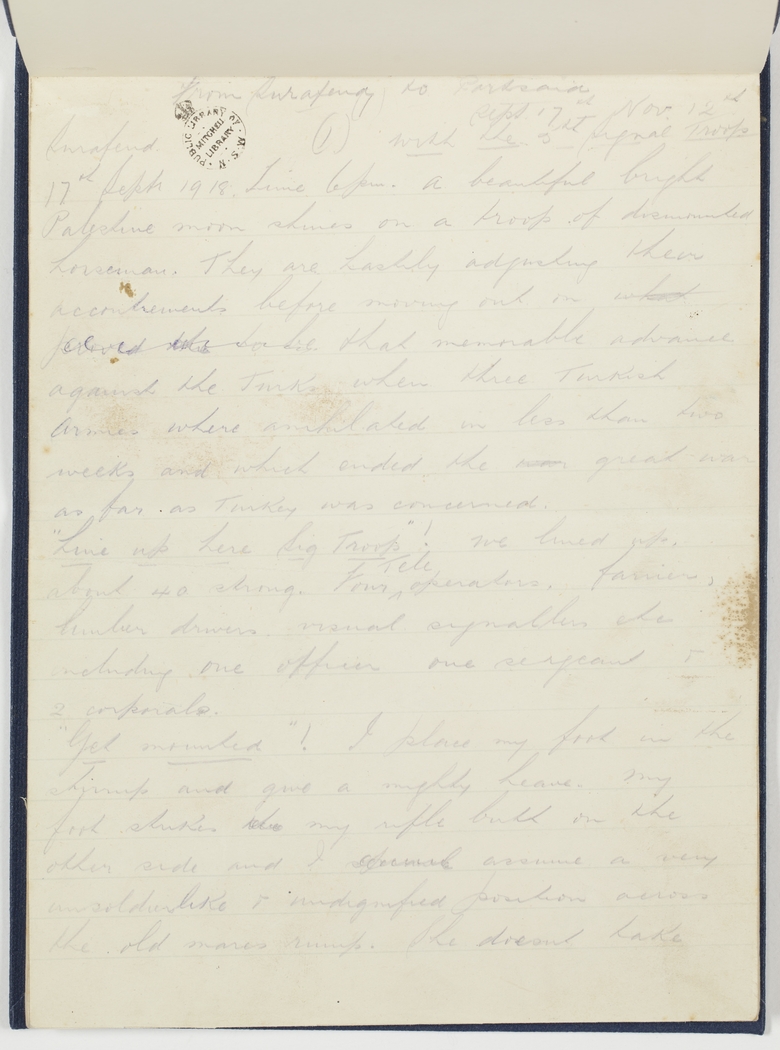 From Surafend to Portsaid
Sept 17th Nov. 12th
PUBLIC LIBRARY OF N.S.W.
MITCHELL LIBRARY
Surafend. (1) with the 3rd Signal Troop
17th Sept 1918. Time 6pm. A beautiful bright
Palestine moon shines on a troop of dismounted
horseman. They are hastily adjusting their
accoutrements before moving out on what
proved to be that memorable advance
against the Turks when three Turkish
Armies where anihilated in less than two
weeks and which ended the war great war
as far as Turkey was concerned.
"Line up here Sig Troop"! We lined up.
about 40 strong. Four Tele operators, farrier,
limber drivers visual signallers etc
including one officer one sergeant &
2 corporals.
"Get mounted"! I place my foot in the
stirrup and give a mighty heave. My
foot strikes the my rifle butt on the
other side and I assume a very
unsoldierlike & undignified position across
the old mares rump. She doesnt take